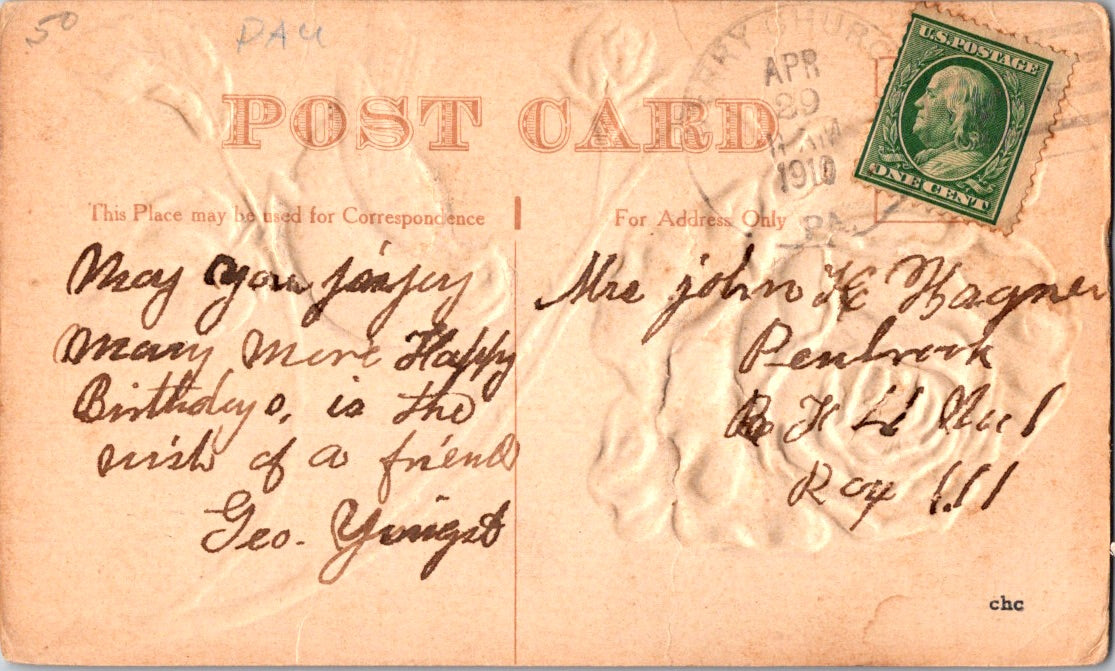 .50
DAU
POST CARD
This Place may be used for Correspondence
For Address Only
U.S. POSTAGE
ONE CENT
CHURC
APR
29
AM
1910
PA.
May you jinjoy
many more Happy
Birthdays, is the
wish of a friend
Geo. Yingst
Mrs john H Wagner
Penbrook
R F D No 1
Box 111
chc